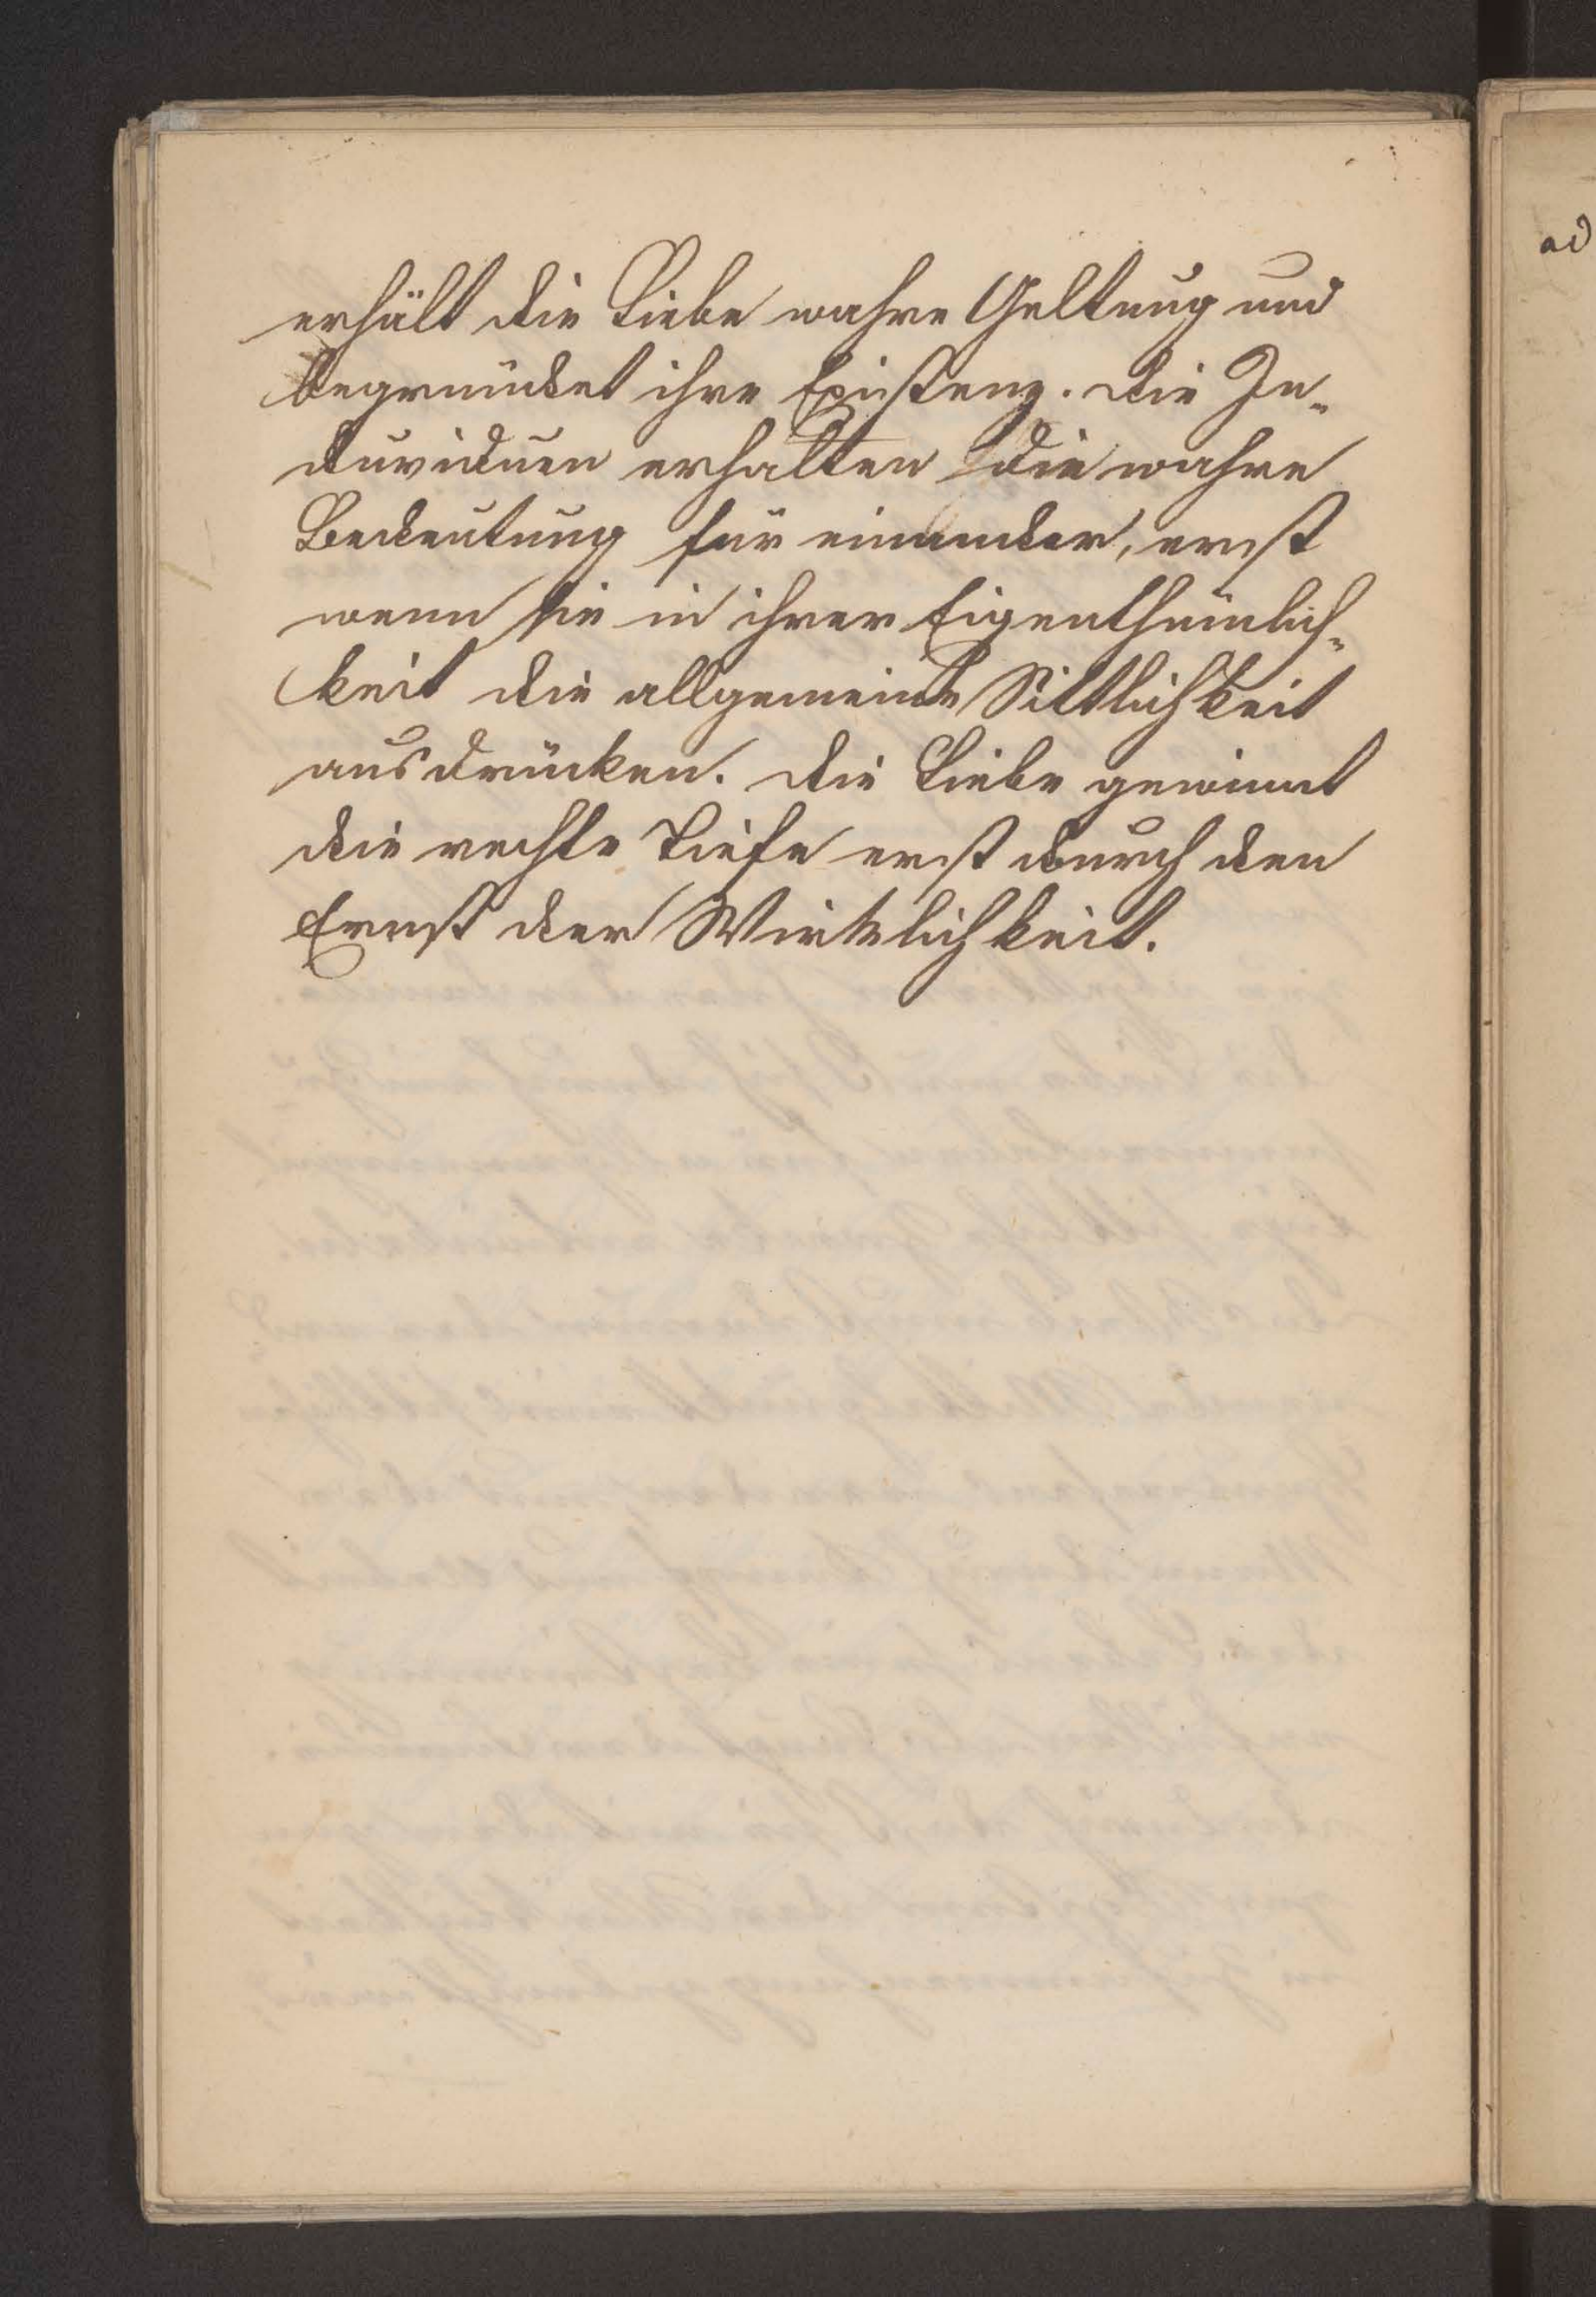 erhält die Liebe wahre Geltung und
begründet ihre Existenz. die In¬
duviduen erhalten die wahre
Bedeutung für einander, erst
wenn sie in ihrer Eigenthümlich¬
keit die allgemeine Sittlichkeit
ausdrücken. die Liebe gewinnt
die rechte Tiefe erst durch den
Ernst der Wirklichkeit.
ad